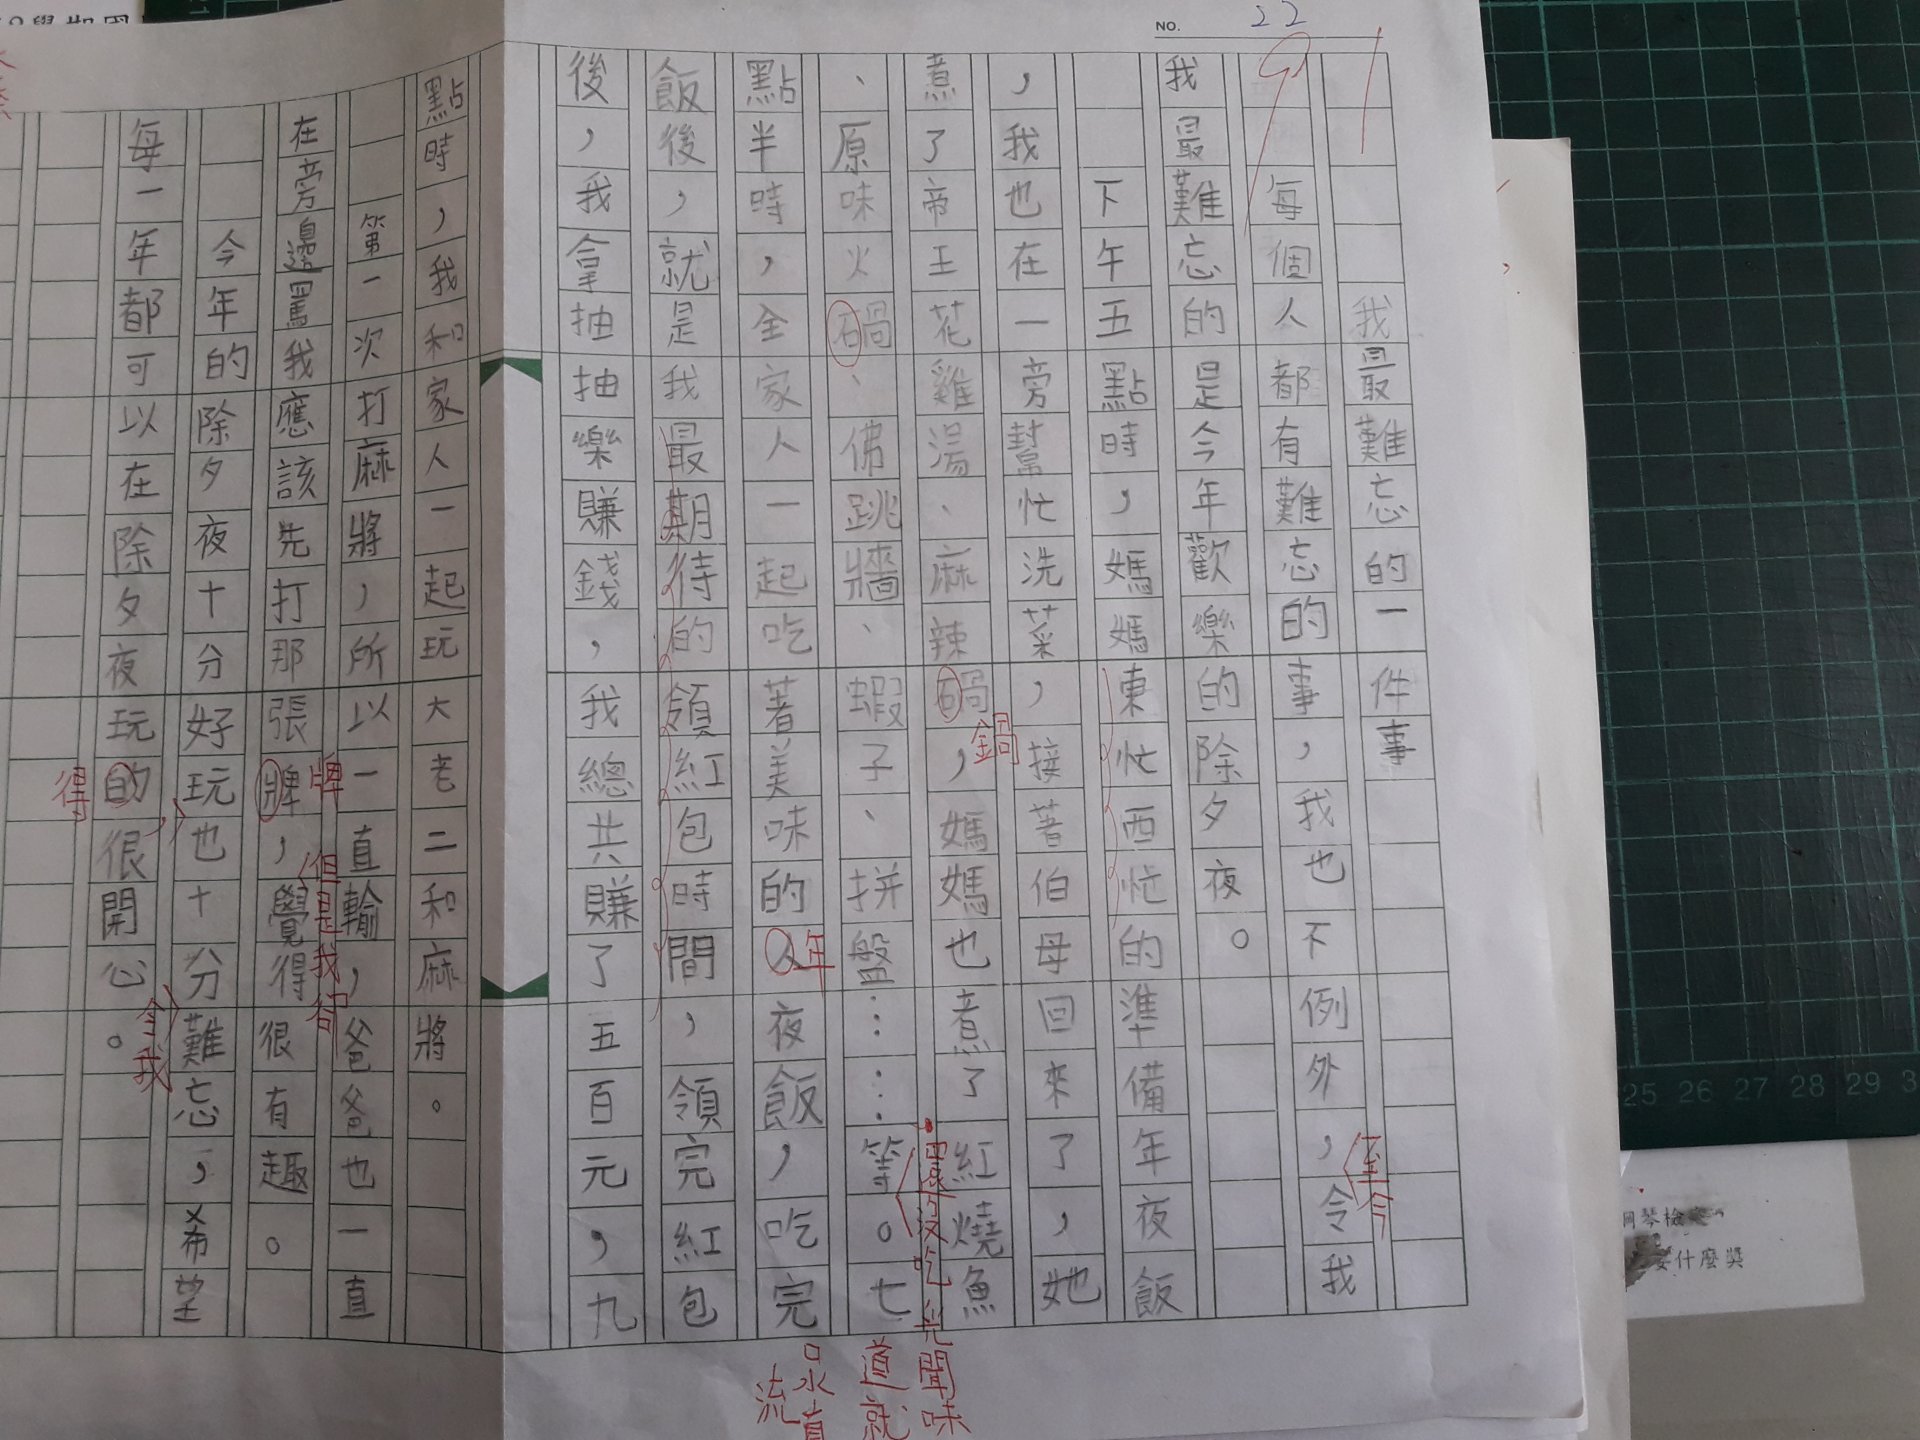 NO. 22
91
我最難忘的一件事
每個人都有難忘的事，我也不例外，令我
至今
我最難忘的是今年歡樂的除夕夜。
下午五點時，媽媽東忙西忙的準備年夜飯
，我也在一旁幫忙洗菜，接著伯母回來了，她
煮了帝王花雞湯、麻辣碢，媽媽也煮了紅燒魚
鍋
、原味火碢、佛跳牆、蝦子、拼盤……等。七
還沒吃光聞味
道就
口水直
流
點半時，全家人一起吃著美味的夜飯，吃完
年
飯後，就是我最期待的領紅包時間，領完紅包
後，我拿抽抽樂賺錢，我總共賺了五百元，九
點時，我和家人一起玩大老二和麻將。
第一次打麻將，所以一直輸，爸爸也一直
在旁邊罵我應該先打那張牌，覺得很有趣。
牌
但是我卻
今年的除夕夜十分好玩也十分難忘，希望
，
令我
每一年都可以在除夕夜玩的很開心。
得
25 26 27 28 29 3
鋼琴檢定
要什麼獎